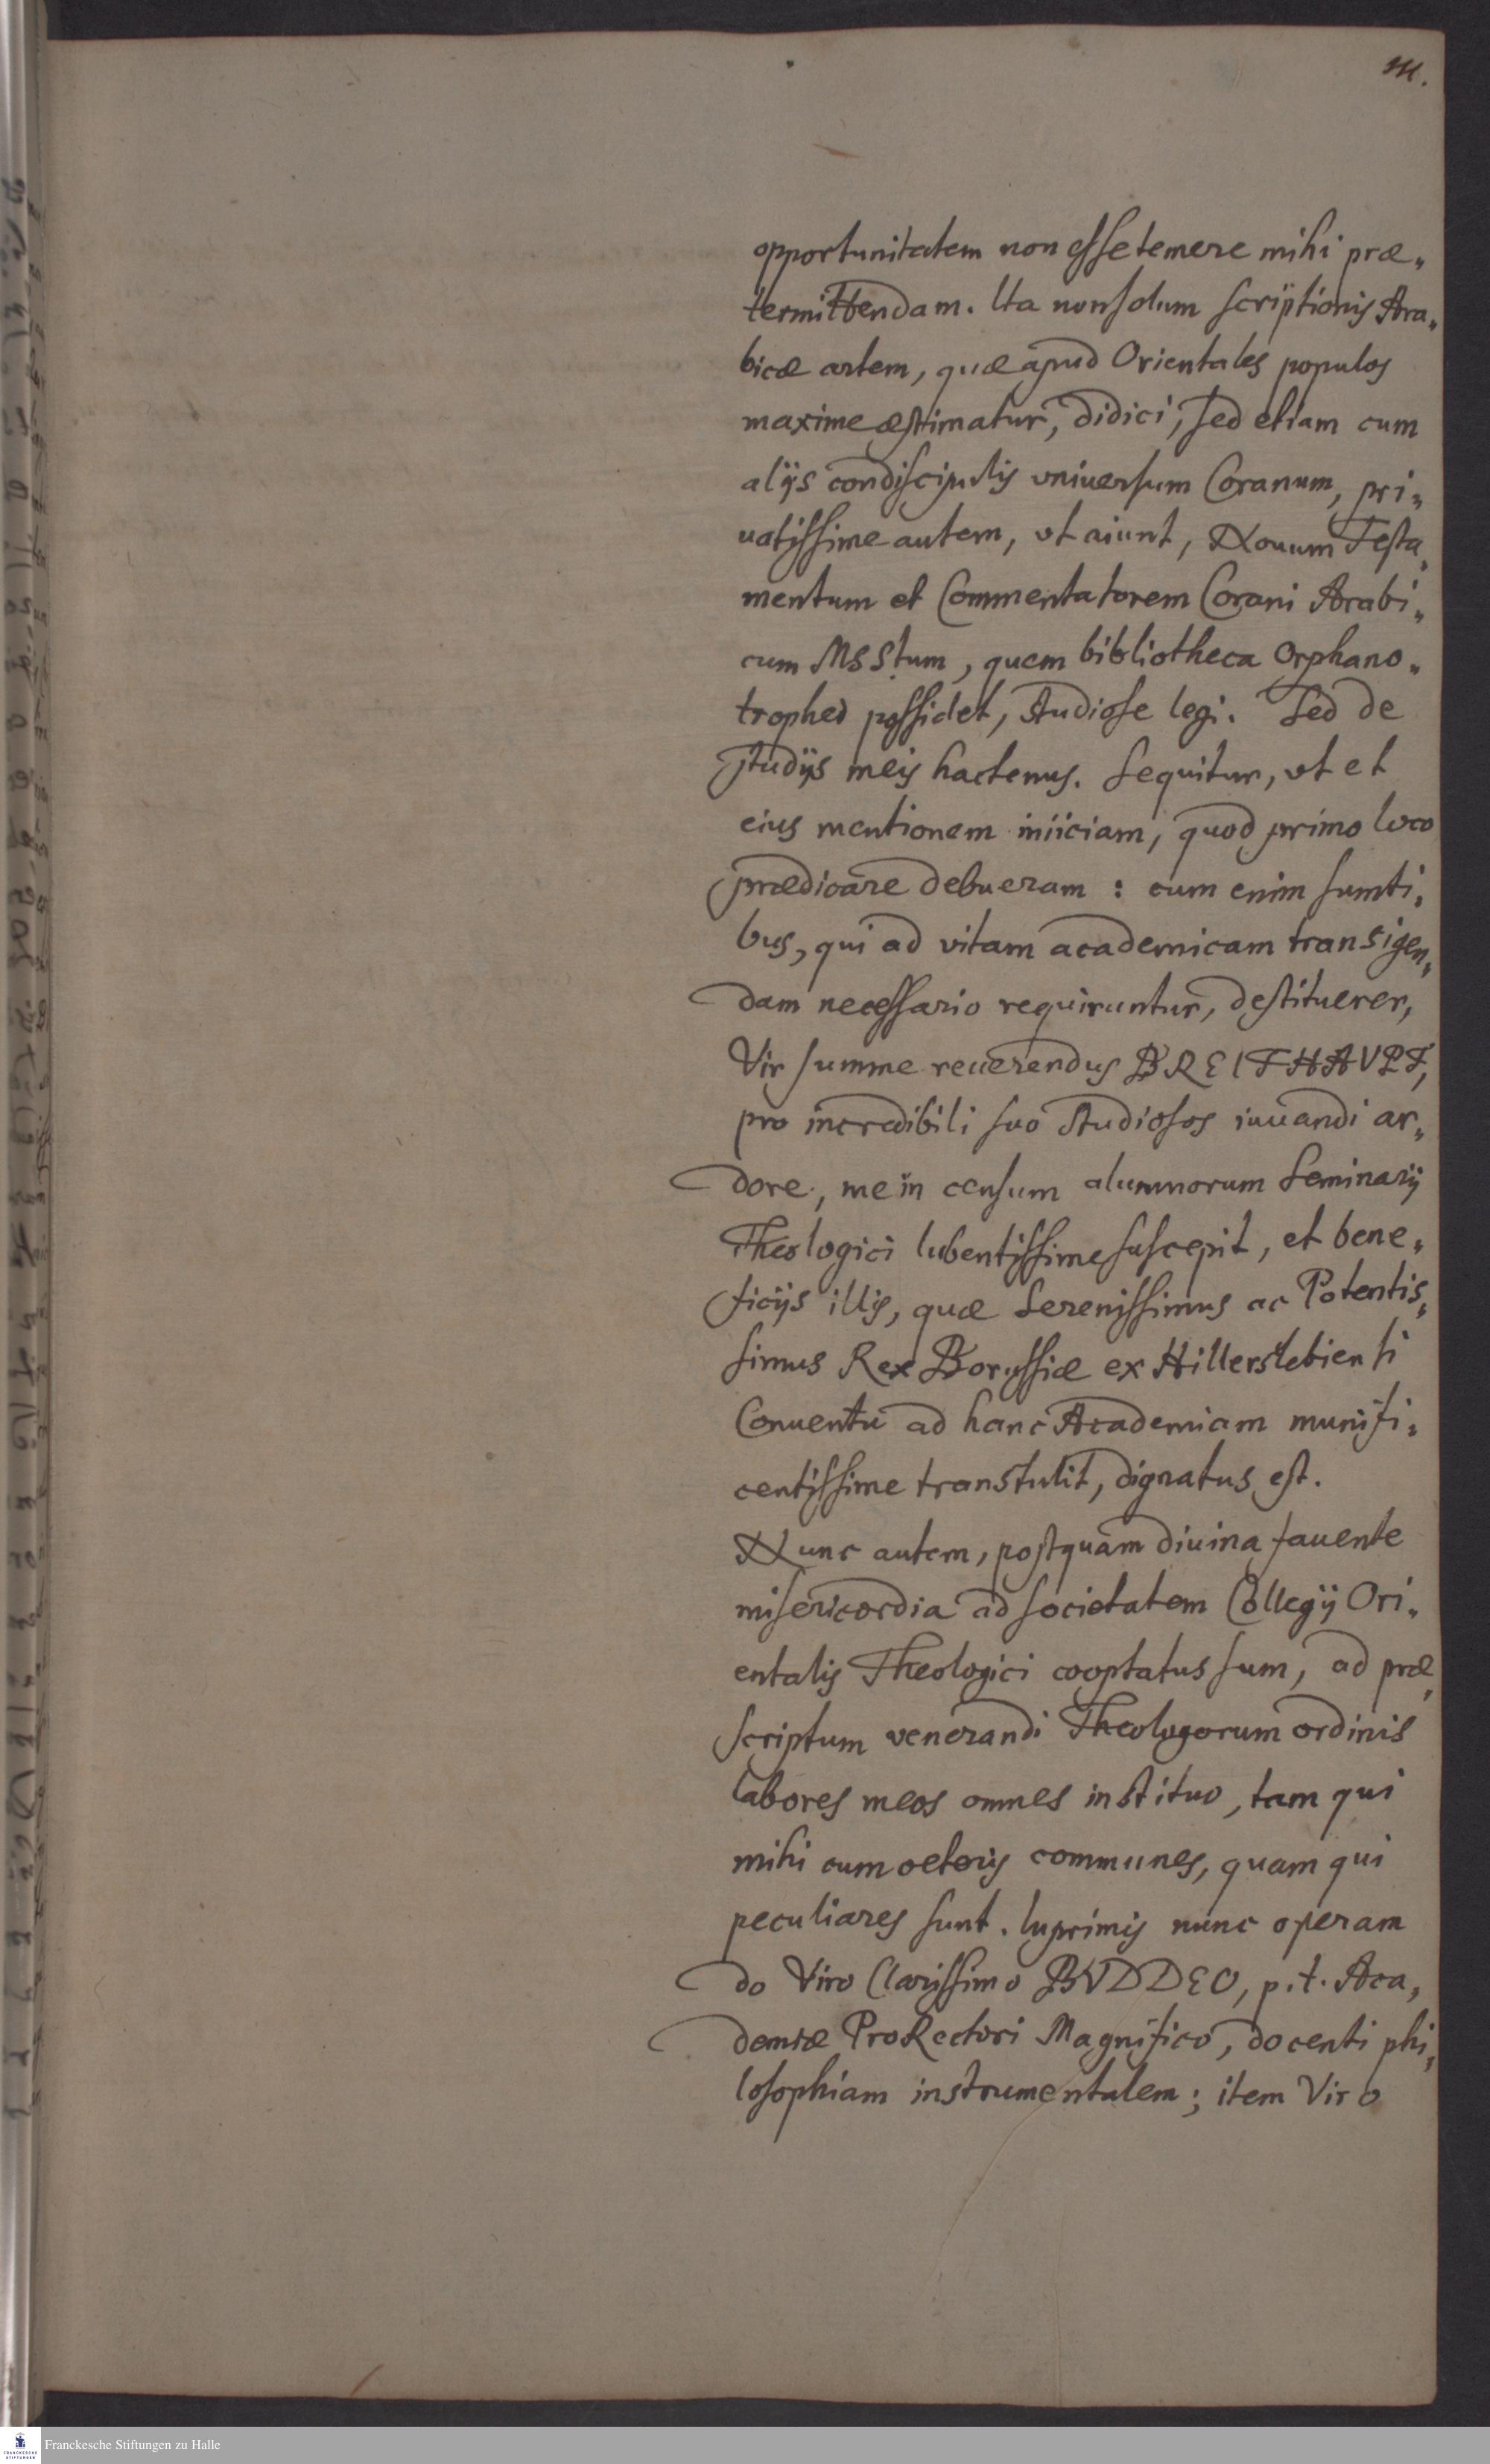 111.
opportunitatem non esse temere mihi præ„
termittendam. Ita non solum scriptionis Ara„
bicæ artem, quæ apud Orientales populos
maxime æstimatur, didici, sed etiam cum
alijs condiscipulis vniuersum Coranum, pri„
uatissime autem, vt aiunt, Nouum Testa„
mentum et Commentatorem Corani Arabi„
cum MSStum, quem bibliotheca Orphano„
trophei possidet, studiose legi. Sed de
studijs meis hactenus. Sequitur, vt et
eius mentionem iniiciam, quod primo loco
prædicare debueram : cum enim sumti„
bus, qui ad vitam academicam transigen„
dam necessario requiruntur, destituerer,
Vir summe reuerendus BREITHAVPT,
pro incredibili suo studiosos iuuandi ar„
dore, me in censum alumnorum Seminarij
Theologici lubentissime suscepit, et bene„
ficijs illis, quæ Serenissimus ac Potentis„
simus Rex Borussiæ ex Hillerslebiensi
Conuentu ad hanc Academiam munifi„
centissime transtulit, dignatus est.
Nunc autem, postquam diuina fauente
misericordia ad societatem Collegij Ori„
entalis Theologici cooptatus sum, ad præ„
scriptum venerandi Theologorum ordinis
labores meos omnes instituo, tam qui
mihi cum ceteris communes, quam qui
peculiares sunt. Inprimis nunc operam
do Viro Clarissimo BVDDEO, p. t. Aca„
demiæ ProRectori Magnifico, docenti phi„
losophiam instrumentalem; item Viro
Franckesche Stiftungen zu Halle